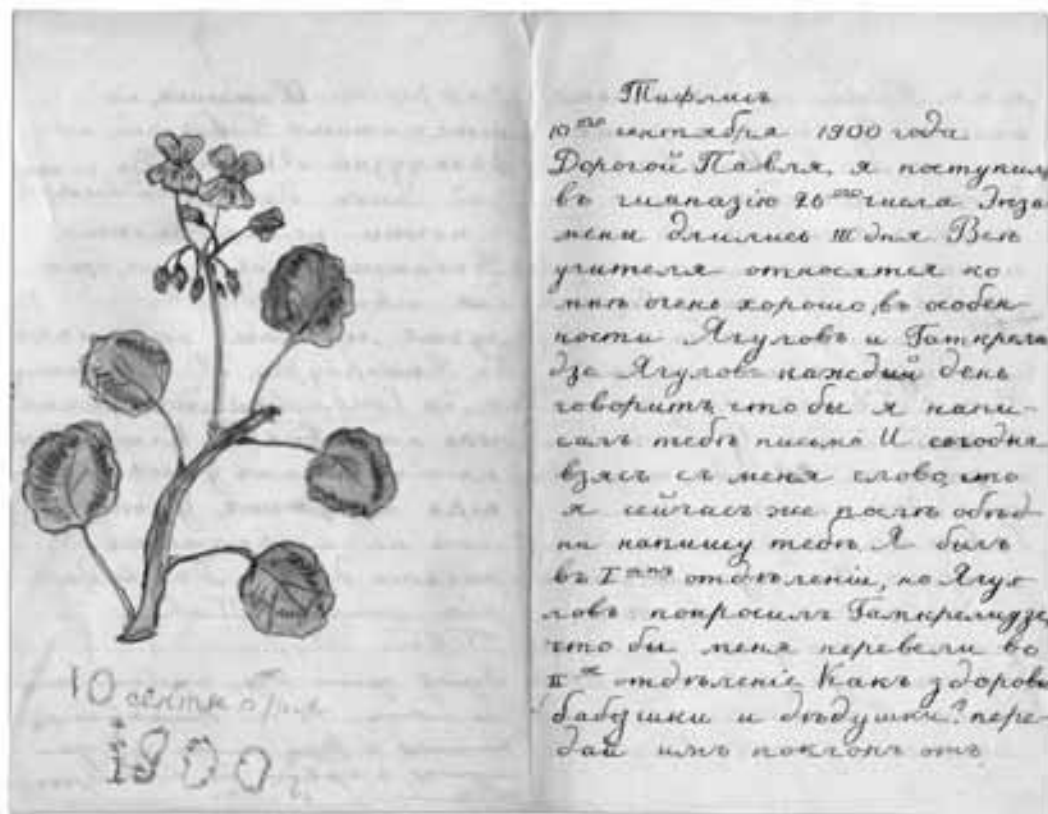 10 сентября
1900
Тифлисъ
10го сентября 1900 года
Дорогой Павля, я поступилъ
въ гимназію 26ого числа Экза-
мены длились III дня Всѣ
учителя относятся ко
мнѣ очень хорошо, въ особен-
ности Ягуловъ и Гамкрели
дзе Ягуловъ каждый день
говоритъ, что бы я напи-
салъ тебѣ письмо И сегодня
взялъ съ меня слово, что
я сейчасъ же послѣ обѣд
на напишу тебѣ. Я былъ
въ Iомъ отдѣленіи, но Ягу-
ловъ попросилъ Гамкрелидзе,
что бы меня перевели во
II ое отдѣленіе Какъ здоровье
бабушки и дѣдушки? пере-
дай имъ поклонъ отъ